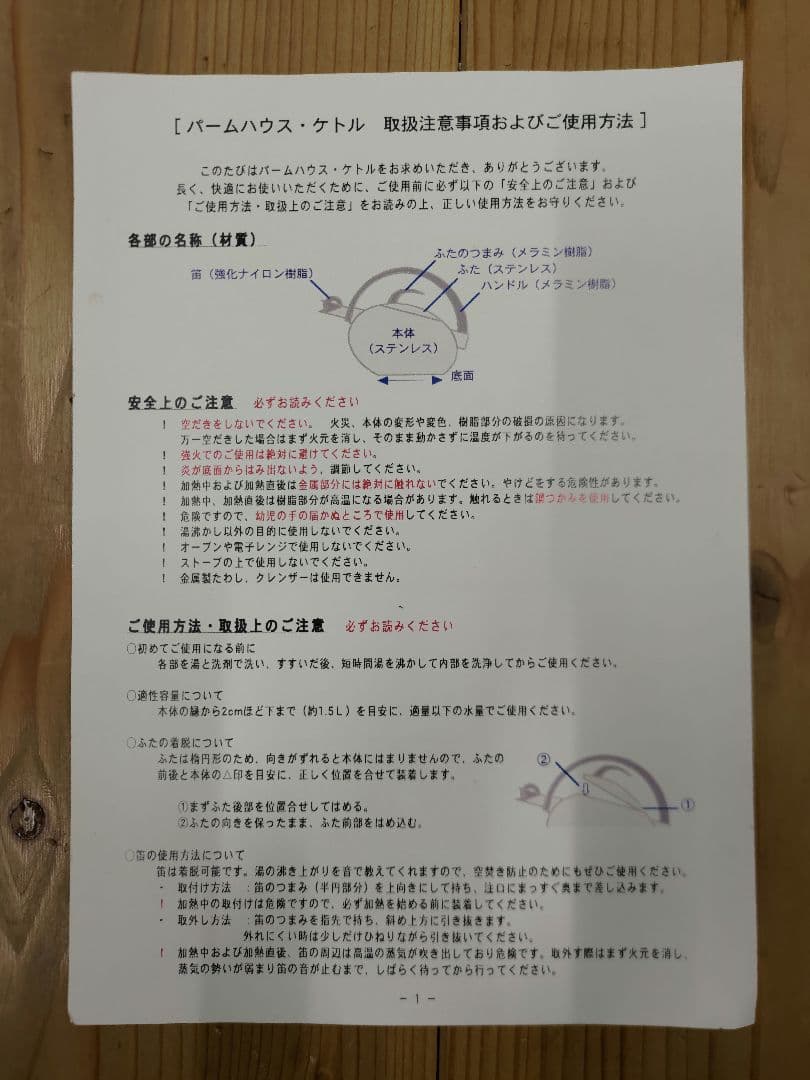 ［ パームハウス・ケトル　取扱注意事項およびご使用方法 ］
このたびはパームハウス・ケトルをお求めいただき、ありがとうございます。
長く、快適にお使いいただくために、ご使用前に必ず以下の「安全上のご注意」および
「ご使用方法・取扱上のご注意」をお読みの上、正しい使用方法をお守りください。
各部の名称（材質）
ふたのつまみ（メラミン樹脂）
ふた（ステンレス）
笛（強化ナイロン樹脂）
ハンドル（メラミン樹脂）
本体
（ステンレス）
底面
安全上のご注意　必ずお読みください
！ 空だきをしないでください。　火災、本体の変形や変色、樹脂部分の破損の原因になります。
万一空だきした場合はまず火元を消し、そのまま動かさずに温度が下がるのを待ってください。
！ 強火でのご使用は絶対に避けてください。
！ 炎が底面からはみ出ないよう、調節してください。
！ 加熱中および加熱直後は金属部分には絶対に触れないでください。やけどをする危険性があります。
！ 加熱中、加熱直後は樹脂部分が高温になる場合があります。触れるときは鍋つかみを使用してください。
！ 危険ですので、幼児の手の届かぬところで使用してください。
！ 湯沸かし以外の目的に使用しないでください。
！ オーブンや電子レンジで使用しないでください。
！ ストーブの上で使用しないでください。
！ 金属製たわし、クレンザーは使用できません。
ご使用方法・取扱上のご注意　必ずお読みください
○初めてご使用になる前に
各部を湯と洗剤で洗い、すすいだ後、短時間湯を沸かして内部を洗浄してからご使用ください。
○適性容量について
本体の縁から2cmほど下まで（約1.5L）を目安に、適量以下の水量でご使用ください。
○ふたの着脱について
ふたは楕円形のため、向きがずれると本体にはまりませんので、ふたの
前後と本体の△印を目安に、正しく位置を合せて装着します。
①まずふた後部を位置合せしてはめる。
②ふたの向きを保ったまま、ふた前部をはめ込む。
②
①
○笛の使用方法について
笛は着脱可能です。湯の沸き上がりを音で教えてくれますので、空焚き防止のためにもぜひご使用ください。
・ 取付け方法　：笛のつまみ（半円部分）を上向きにして持ち、注口にまっすぐ奥まで差し込みます。
！ 加熱中の取付けは危険ですので、必ず加熱を始める前に装着してください。
・ 取外し方法　：笛のつまみを指先で持ち、斜め上方に引き抜きます。
外れにくい時は少しだけひねりながら引き抜いてください。
！ 加熱中および加熱直後、笛の周辺は高温の蒸気が吹き出しており危険です。取外す際はまず火元を消し、
蒸気の勢いが弱まり笛の音が止むまで、しばらく待ってから行ってください。
－ 1 －